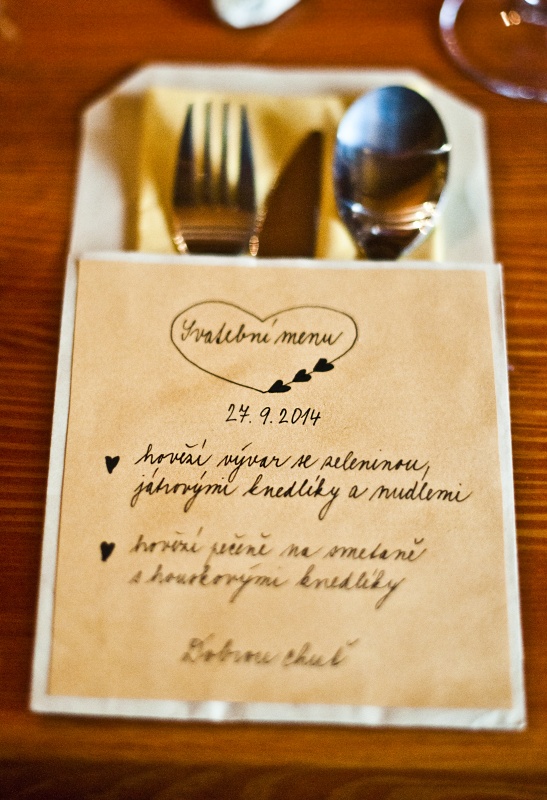 Svatební menu
27. 9. 2014
hovězí vývar se zeleninou,
játrovými knedlíky a nudlemi
hovězí pečeně na smetaně
s houskovými knedlíky
Dobrou chuť